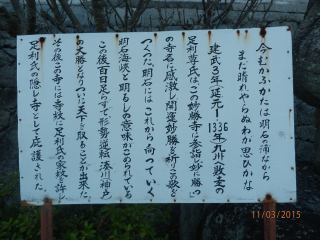 今むかふかたは明石の浦ながら
まだ晴れやらぬわが思ひかな
建武3年(延元1-1336年)九州敗走の
足利尊氏はこの妙勝寺に参詣「妙に勝つ」
の寺名に感激し開運妙勝を祈りこの歌を
つくった。明石にはこれから向っていく、
明石海峡と明るしの意味がこめられている
この後百日足らずで形勢逆転、湊川(神戸)
の大勝となりついに天下を取ることが出来た。
その後この寺には寺紋に足利氏の家紋を許し
足利氏の隠し寺として庇護された
11/03/2015